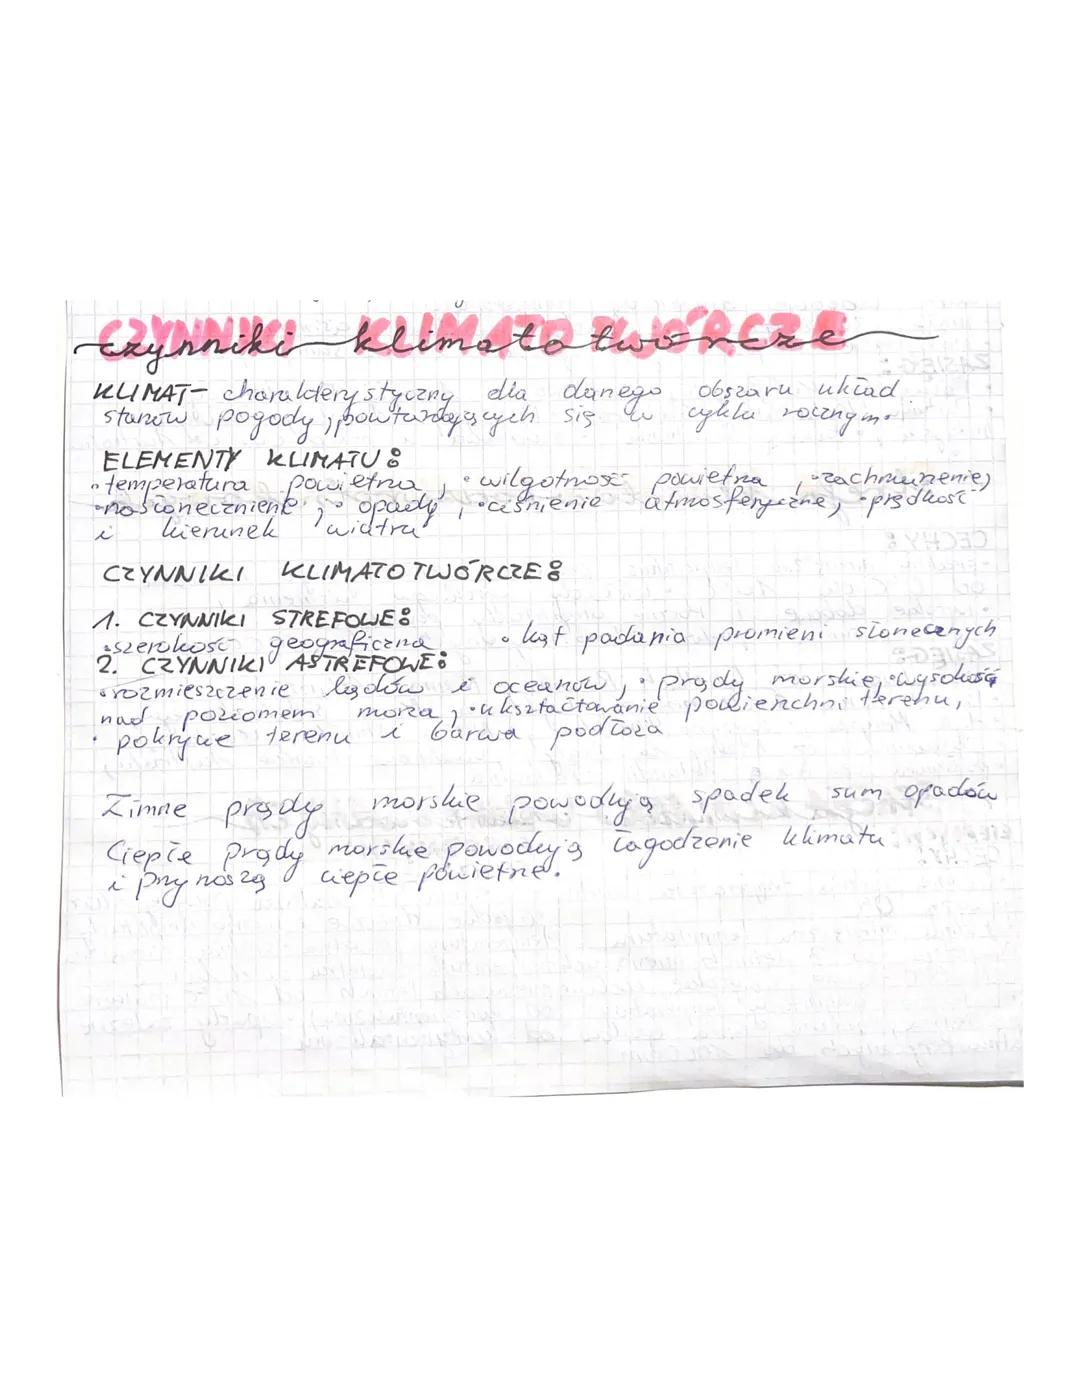 czynniki klimatotwórcze
KLIMAT- charakterystyczny dla danego obszaru układ
stanów pogody, powtarzających się w cyklu rocznym.
ELEMENTY KLIMATU:
• temperatura powietrza, • wilgotność powietrza, • zachmurzenie,
• nasłonecznienie, • opady, • ciśnienie atmosferyczne, • prędkość
i kierunek wiatru
CZYNNIKI KLIMATOTWÓRCZE:
1. CZYNNIKI STREFOWE:
• szerokość geograficzna • kąt padania promieni słonecznych
2. CZYNNIKI ASTREFOWE:
• rozmieszczenie lądów i oceanów, • prądy morskie, • wysokość
nad poziomem morza, • ukształtowanie powierzchni terenu,
• pokrycie terenu i barwa podłoża
Zimne prądy morskie powodują spadek sum opadów
Ciepłe prądy morskie powodują łagodzenie klimatu
i przynoszą ciepłe powietrze.